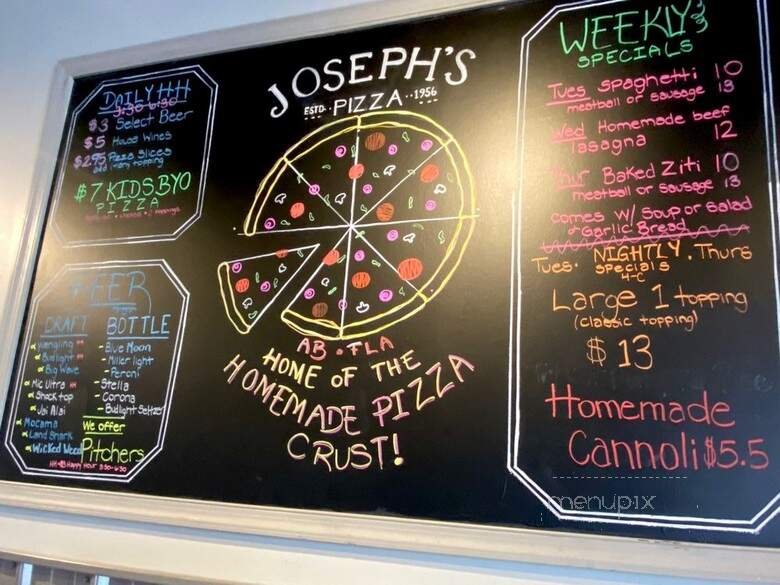 DAILY HH
3:30-6:30
$3 Select Beer
$5 House Wines
$2.95 Pizza Slices
add any topping
$7 KIDS BYO
PIZZA
JOSEPH'S
ESTD. PIZZA 1956
AB • FLA
HOME OF THE
HOMEMADE PIZZA
CRUST!
BEER
DRAFT
Yuengling HH
Budlight HH
Big Wave
Mic Ultra HH
Shock top
Jai Alai
Mocama
Land Shark
Wicked Weed
BOTTLE
- Blue Moon
- Miller light
- Peroni
- Stella
- Corona
- Budlight Seltzer
We offer
Pitchers
HH = Happy Hour 3:30-6:30
WEEKLY
SPECIALS
Tues Spaghetti 10
meatball or sausage 13
Wed Homemade beef
lasagna 12
Thur Baked Ziti 10
meatball or sausage 13
Comes W/ Soup or Salad
& Garlic Bread
Tues. NIGHTLY. Thurs
Specials
4-C
Large 1 topping
(classic topping)
$13
Homemade
Cannoli $5.5
menupix